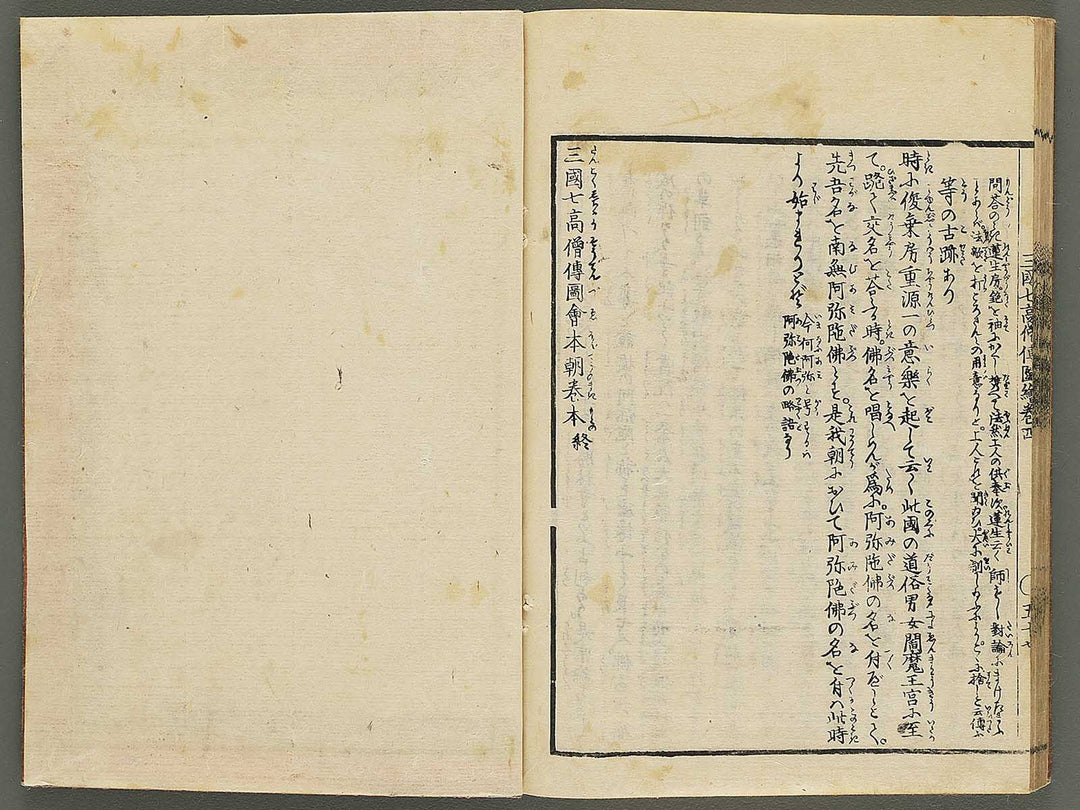 三國七高僧傳圖繪巻四
五十七
問答の時蓮生房鉈を袖にかくし携へて法然上人の供奉次蓮生云く師もし對論にまけたまふ
とあらバ法敵を打ところさんとの用意なりと上人これを聞たまひ大に制したまふよつてこゝに捨しと云傳ふ
等の古跡あり
時に俊乗房重源一の意樂を起して云く此國の道俗男女閻魔王宮に至
て。跪て交名を答る時。佛名を唱しめんが爲に。阿弥陀佛の名を付べしとて。
先吾名を南無阿弥陀佛とす。是我朝において阿弥陀佛の名を付ハ此時
より始りきりとぞ
今何阿弥と号するハ
阿弥陀佛の略語なり
三國七高僧傳圖會本朝巻本終